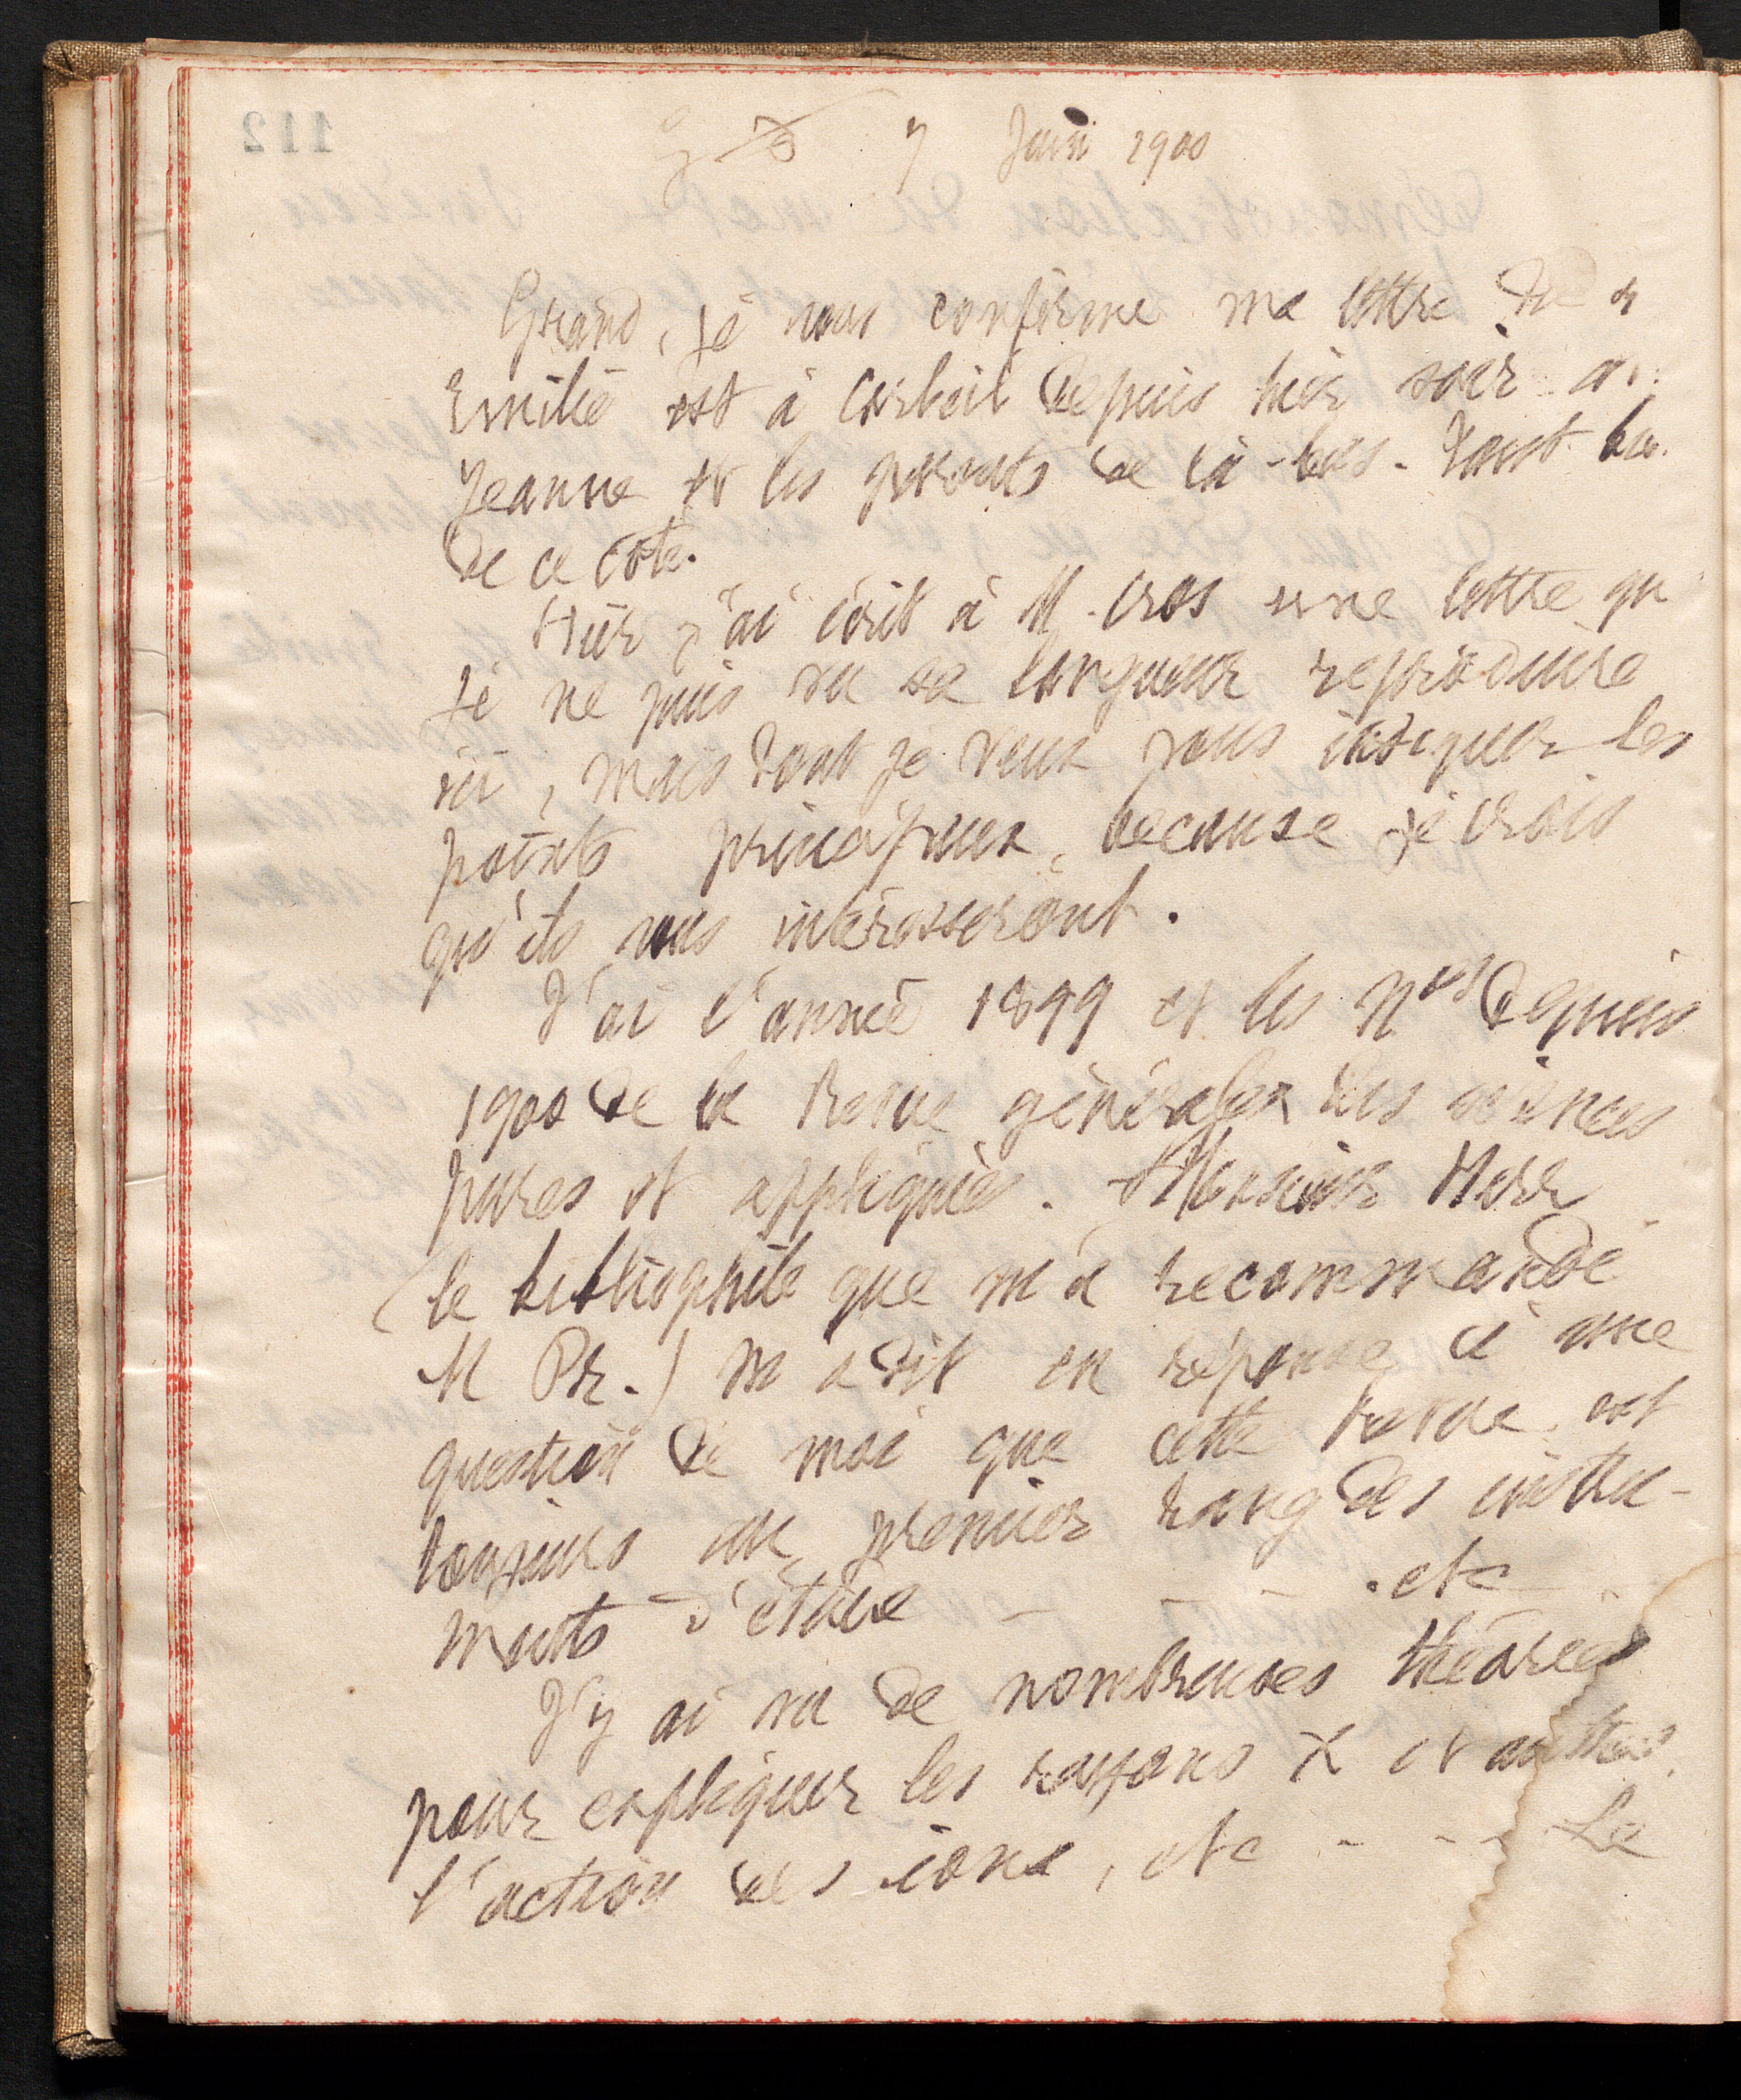 7 Juin 1900
Grand, je vous confirme ma lettre
Emilie est à Corbeil depuis hier soir a
Jeanne et les parents de là-bas. Tout
de ce côté.
Hier j'ai écrit à M. Cros une lettre qu
je ne puis vu sa longueur reproduire
ici, mais dont je veux vous indiquer les
points principaux, because je crois
qu'ils vous intéresseront.
J'ai l'année 1899 et les Nos depuis
1900 de la Revue générale des sciences
pures et appliquées. Monsieur Herr
(le bibliophile que m'a recommandé
M Pr.) m'a dit en réponse à une
question de moi que cette revue est
toujours au premier rang des instru-
ments d'étude - - - . etc
J'y ai vu de nombreuses théories
pour expliquer les rayons X et autres,
l'action des ions, etc - - - Le
112